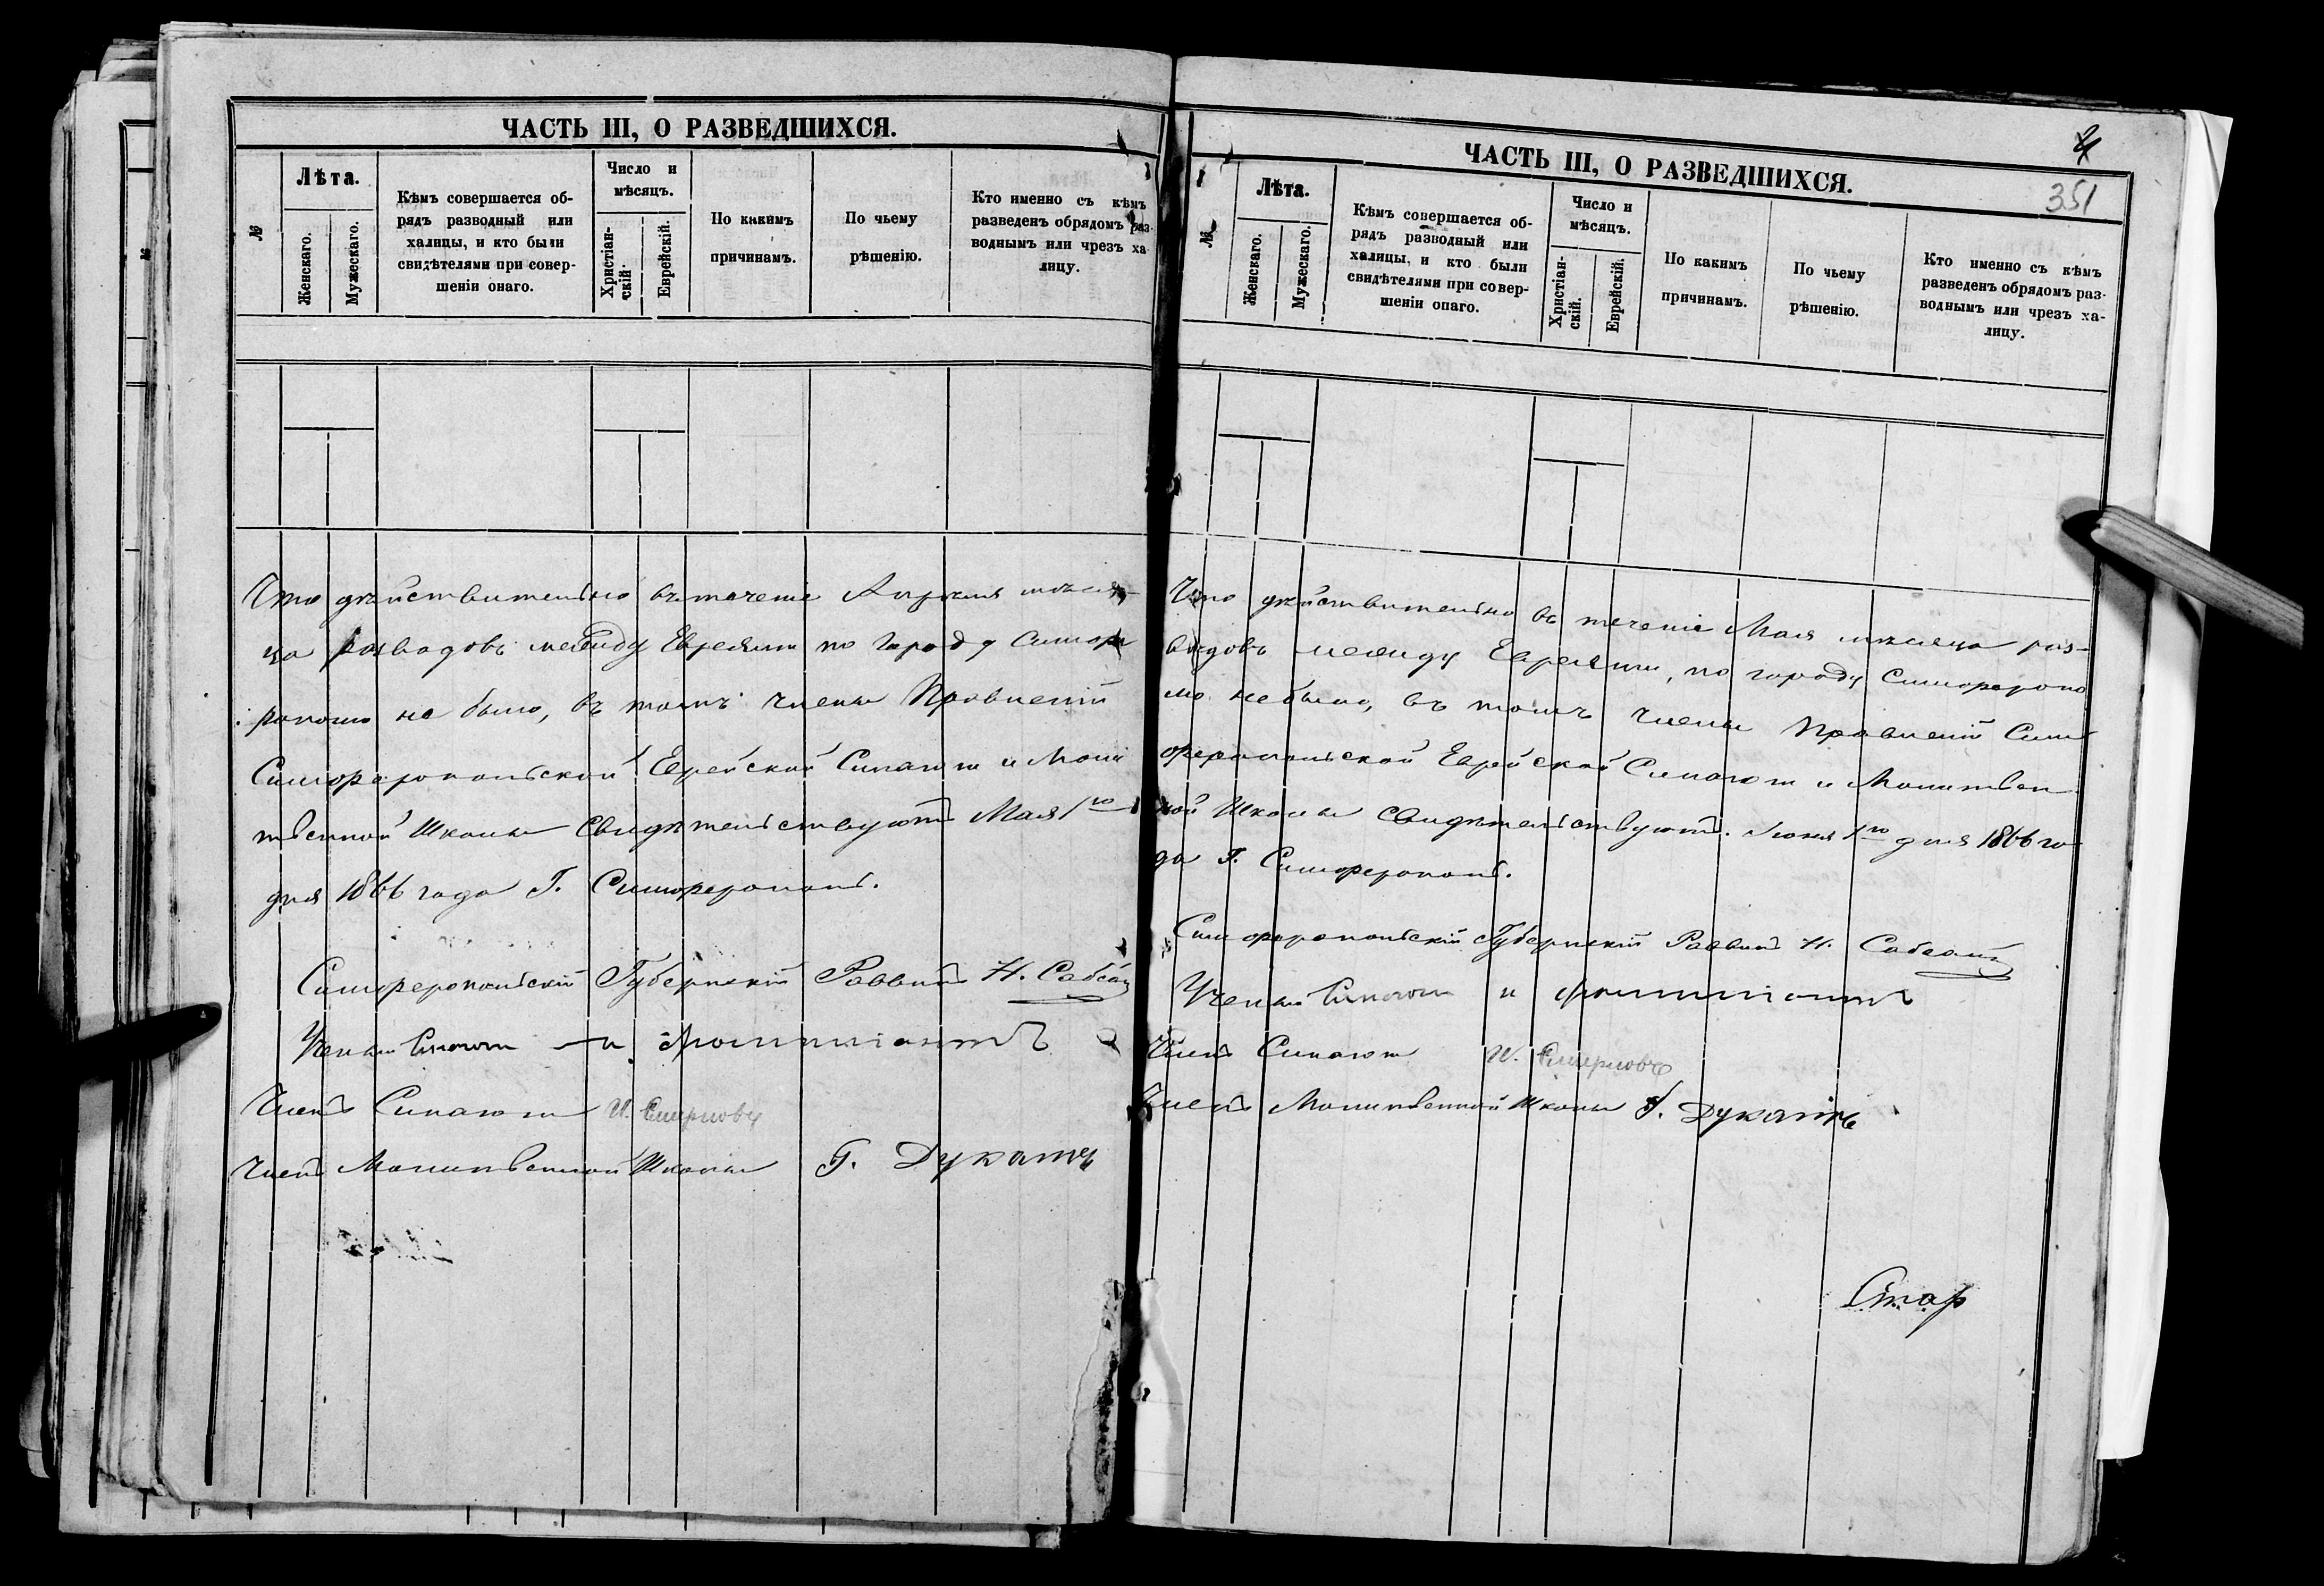 ЧАСТЬ III, О РАЗВЕДШИХСЯ.
№
Лѣта.
Женскаго.
Мужескаго.
Кѣмъ совершается об-
рядъ разводный или
халицы, и кто были
свидѣтелями при совер-
шеніи онаго.
Число и
мѣсяцъ.
Христіан-
скій.
Еврейскій.
По какимъ
причинамъ.
По чьему
рѣшенію.
Кто именно съ кѣмъ
разведенъ обрядомъ раз-
воднымъ или чрезъ ха-
лицу.
Что дѣйствительно въ теченіе Апреля мѣся-
ца разводовъ между Евреями по городу Симфе
рополю не было, въ томъ члены Правленій
Симферопольской Еврейской Синагоги и Моли
твенной Школы свидѣтельствуютъ Мая 1го
дня 1866 года Г. Симферополь.
Симферопольскій Губернскій Раввинъ Н.
Ученый Синагоги и
Членъ Синагоги И. Смирновъ
Членъ Молитвенной Школы Г. Дукатъ
ЧАСТЬ III, О РАЗВЕДШИХСЯ.
351
№
Лѣта.
Женскаго.
Мужескаго.
Кѣмъ совершается об-
рядъ разводный или
халицы, и кто были
свидѣтелями при совер-
шеніи онаго.
Число и
мѣсяцъ.
Христіан-
скій.
Еврейскій.
По какимъ
причинамъ.
По чьему
рѣшенію.
Кто именно съ кѣмъ
разведенъ обрядомъ раз-
воднымъ или чрезъ ха-
лицу.
Что дѣйствительно въ теченіе Мая мѣсяца раз-
водовъ между Евреями, по городу Симферопо
лю не было, въ томъ члены Правленій Сим
феропольской Еврейской Синагоги и Молитвен
ной Школы свидѣтельствуютъ. Іюня 1го дня 1866 го
да Г. Симферополь.
Симферопольскій Губернскій Раввинъ Н.
Ученый Синагоги и
Членъ Синагоги И. Смирновъ
Членъ Молитвенной Школы Г. Дукатъ